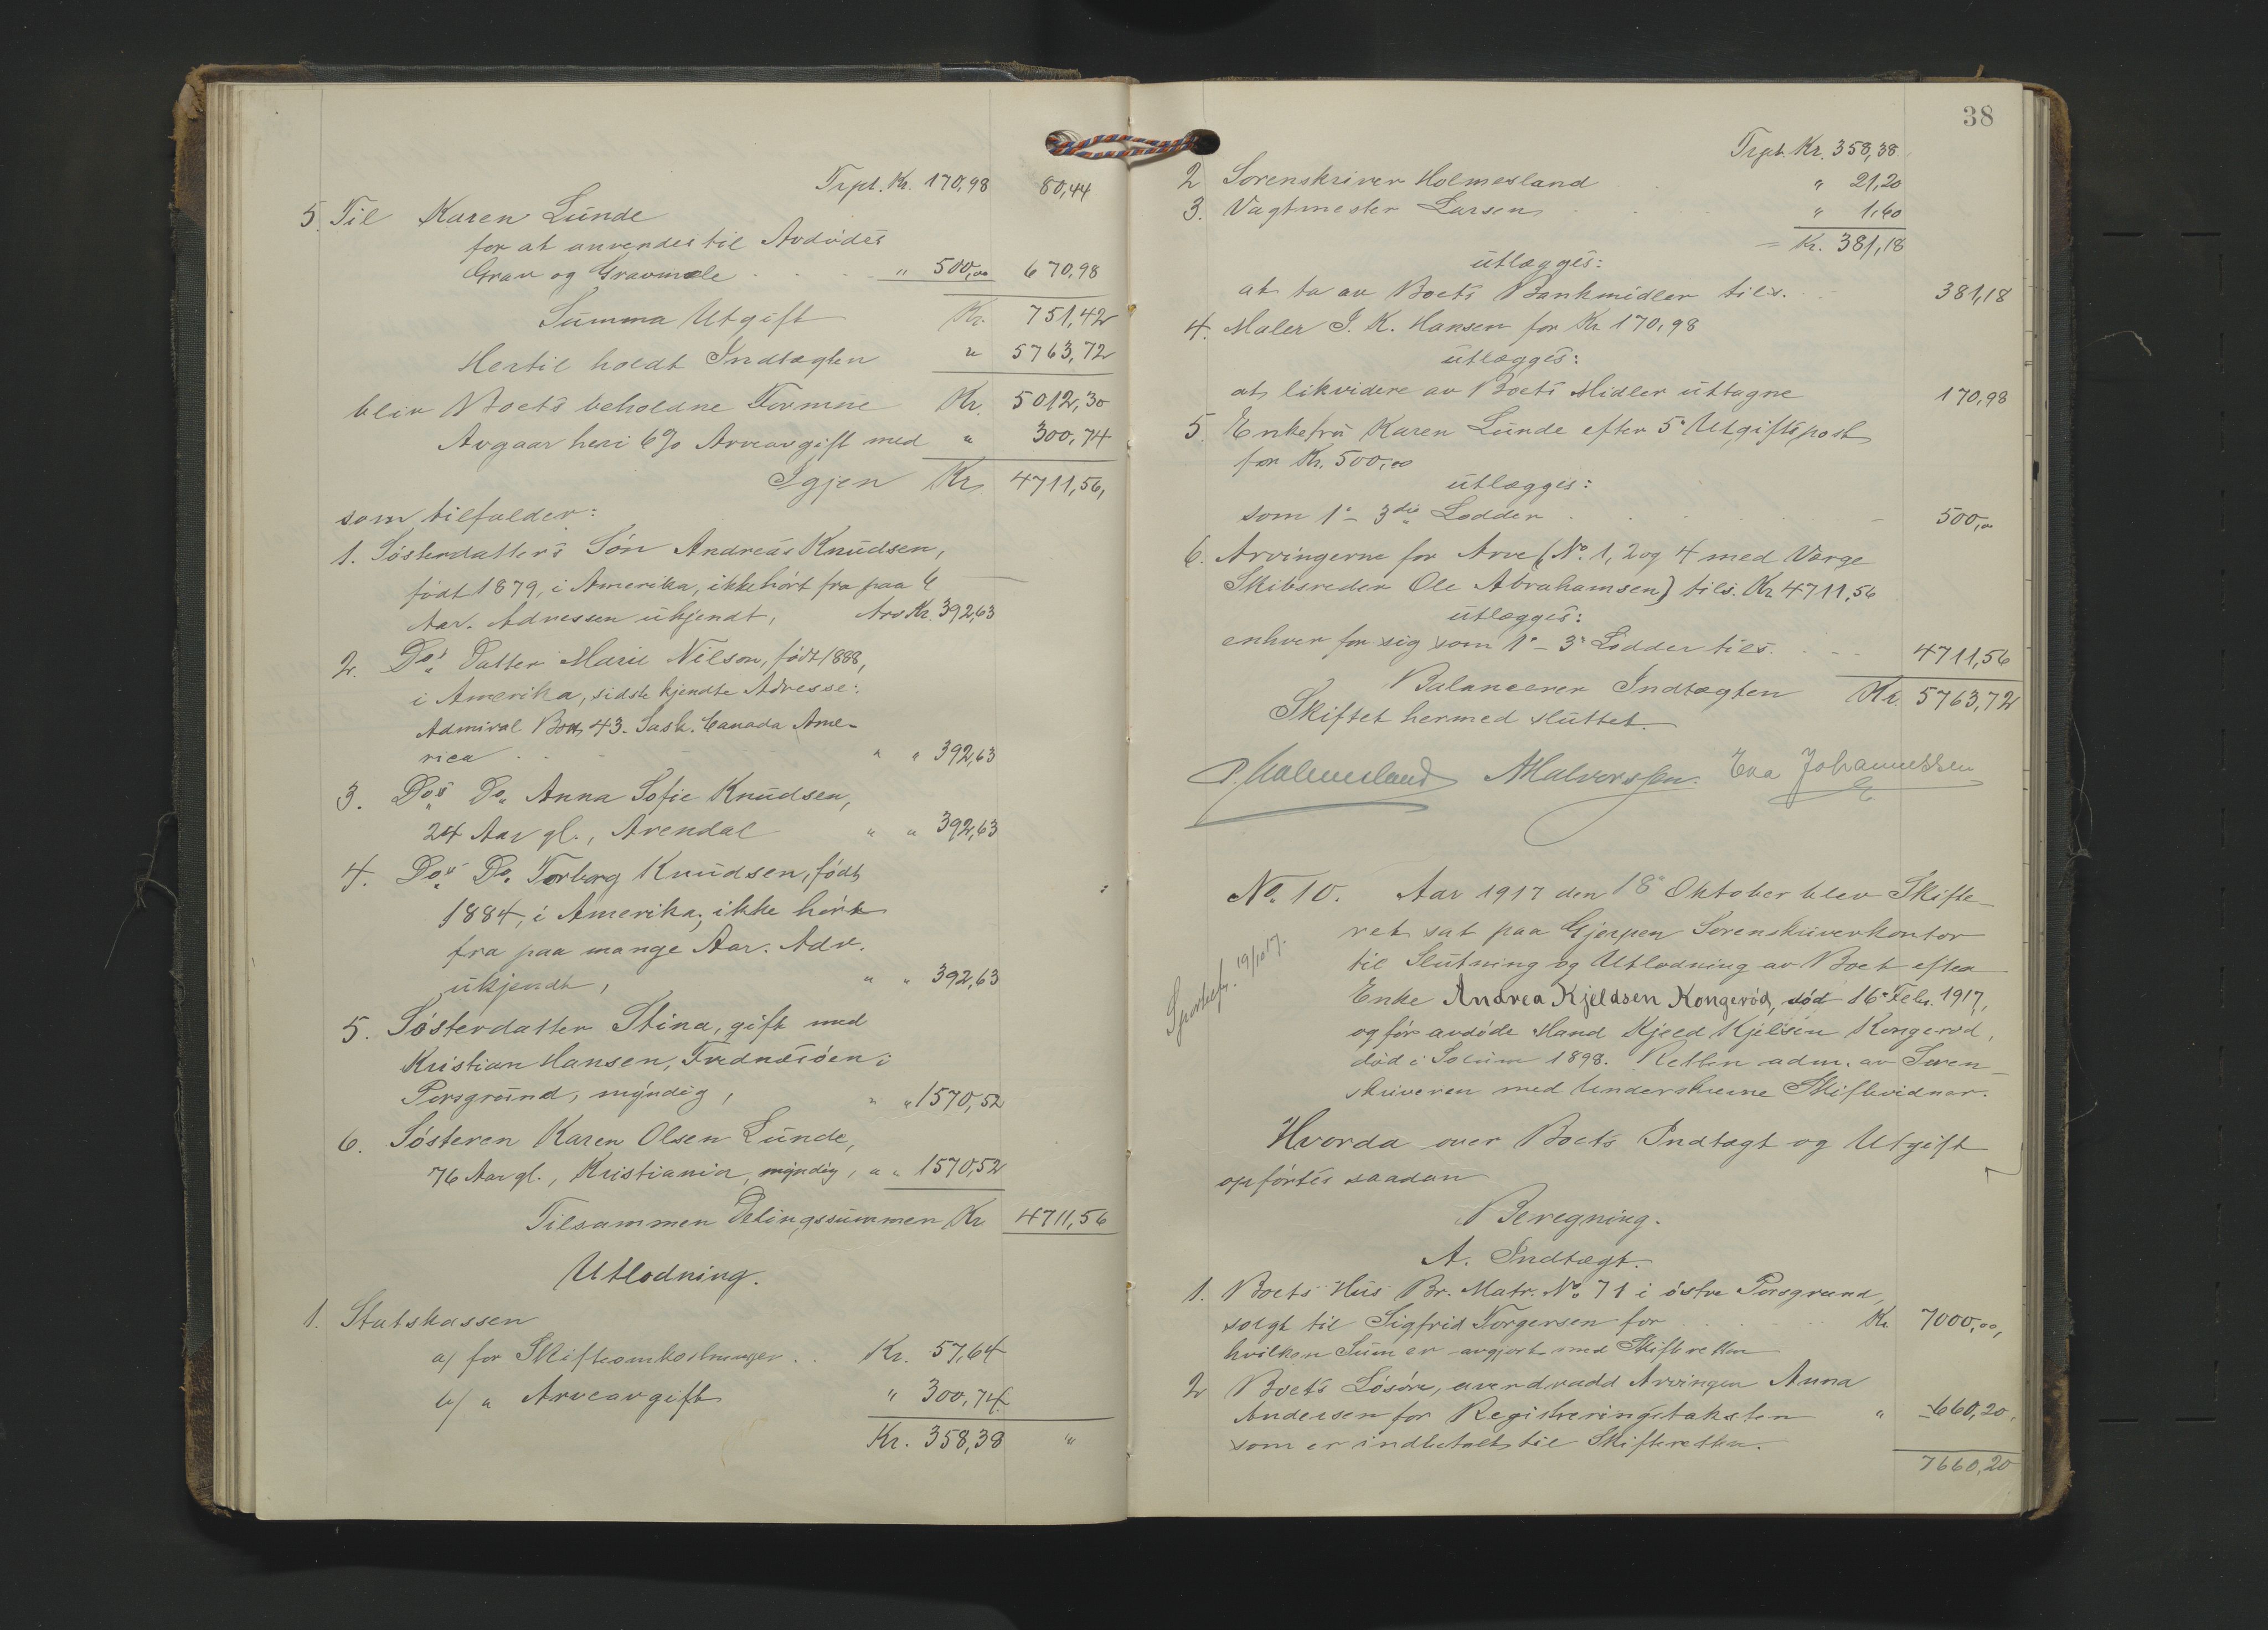 Trpt. Kr. 170,98 80,44
5. Til Karen Lunde
for at anvendes til Avdødes
Grav og Gravmæle . . . " 500,00 670,98
Summa Utgift Kr. 751,42
Hertil holdt Indtægten " 5763,72
blir Boets beholdne Formue Kr. 5012,30
Avgaar heri 6% Arveavgift med " 300,74
Igjen Kr. 4711,56,
som tilfalder:
1. Søsterdatters Søn Andreas Knudsen,
født 1879, i Amerika, ikke hørt fra paa 4
Aar. Adressen ukjendt, Arv Kr. 392,63
2. Do's Datter Marie Nilson, født 1888,
i Amerika, sidste kjendte Adresse:
Admiral Box 43. Sask. Canada Ame-
rica . . " " 392,63
3. Do's Do. Anna Sofie Knudsen,
24 Aar gl., Arendal " " 392,63
4. Do's Do. Torborg Knudsen, født
1884, i Amerika; ikke hørt
fra paa mange Aar. Adr.
ukjendt, " " 392,63
5. Søsterdatter Stina, gift med
Kristian Hansen, Frednæsøen i
Porsgrund, myndig, " " 1570,52
6. Søsteren Karen Olsen Lunde,
76 Aar gl., Kristiania, myndig, " " 1570,52
Tilsammen Delingssummen Kr. 4711,56
Utlodning.
1. Statskassen
a) for Skifteomkostninger . . Kr. 57,64
b) " Arveavgift " 300,74
Kr. 358,38 "
38
Trpt. Kr. 358,38
2 Sorenskriver Holmesland " 21,20
3. Vagtmester Larsen " 1,60
= Kr. 381,18
utlægges:
at ta av Boets Bankmidler tils. 381,18
4. Maler J. K. Hansen for Kr. 170,98
utlægges:
at likvidere av Boets Midler uttagne 170,98
5. Enkefru Karen Lunde efter 5' Utgiftspost
for Kr. 500,00
utlægges:
som 1' - 3die Lodder . . . 500,00
6. Arvingerne for Arv (No. 1, 2 og 4 med Værge
Skibsreder Ole Abrahamsen) tils. Kr. 4711,56
utlægges:
enhver for sig som 1' - 3' Lodder tils. . . . 4711,56
Balancerer Indtægten Kr. 5763,72
Skiftet hermed sluttet.
P. Holmesland A Halvorssen. Eva Johannessen
No. 10. Aar 1917 den 18' Oktober blev Skifte-
ret sat paa Gjerpen Sorenskriverkontor
til Slutning og Utlodning av Boet efter
Enke Andrea Kjeldsen Kongerød, død 16' Febr. 1917,
og før avdøde Mand Kjeld Kjelsen Kongerød,
død i Solum 1898. Retten adm. av Soren-
skriveren med Underskrevne Skiftevidner.
19/10 17.
Hvorda over Boets Indtægt og Utgift
opførtes saadan
Beregning.
A. Indtægt.
1. Boets Hus Br. Matr. No. 71 i østre Porsgrund,
solgt til Sigfrid Torgersen for . . . Kr. 7000,00,
hvilken Sum er avgjort med Skifteretten
2 Boets Løsøre, overdradd Arvingen Anna
Andersen for Registreringstaksten " 660,20,
som er indbetalt til Skifteretten.
7660,20